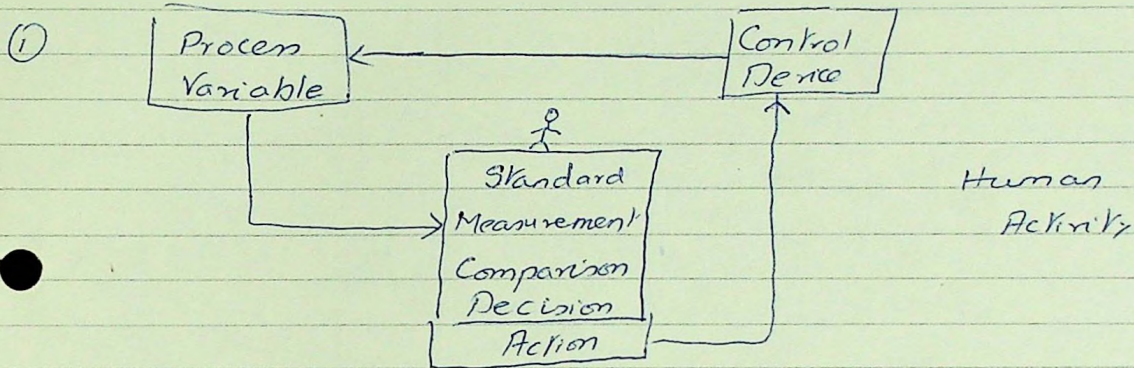 ①
Process
Variable
Control
Device
Standard
Measurement
Comparison
Decision
Action
Human
Activity